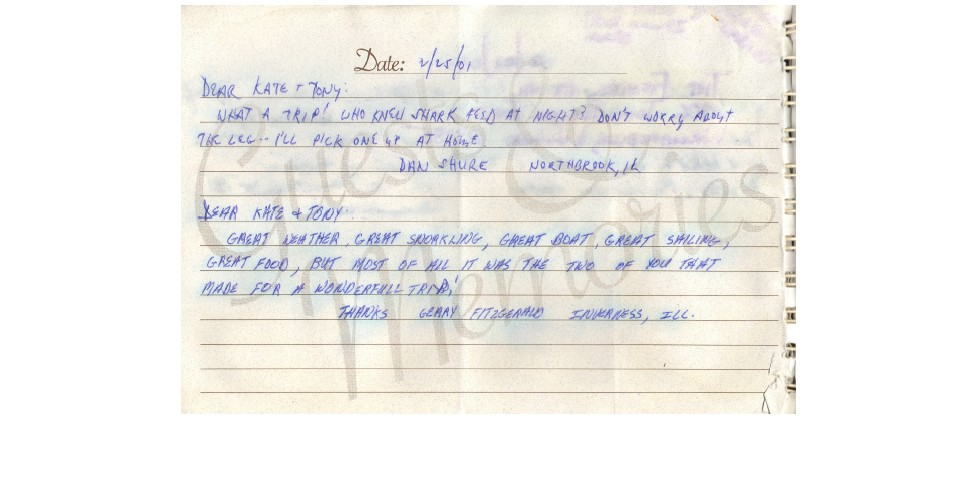 Date: 2/25/01
DEAR KATE + TONY:
WHAT A TRIP! WHO KNEW SHARK FEED AT NIGHT? DON'T WORRY ABOUT
THE LEG -- I'LL PICK ONE UP AT HOME
DAN SHURE NORTHBROOK, IL
DEAR KATE & TONY:
GREAT WEATHER, GREAT SNORKLING, GREAT BOAT, GREAT SAILING,
GREAT FOOD, BUT MOST OF ALL IT WAS THE TWO OF YOU THAT
MADE FOR A WONDERFULL TRIP!
THANKS GERRY FITZGERALD INVERNESS, ILL.
Guest
Memories